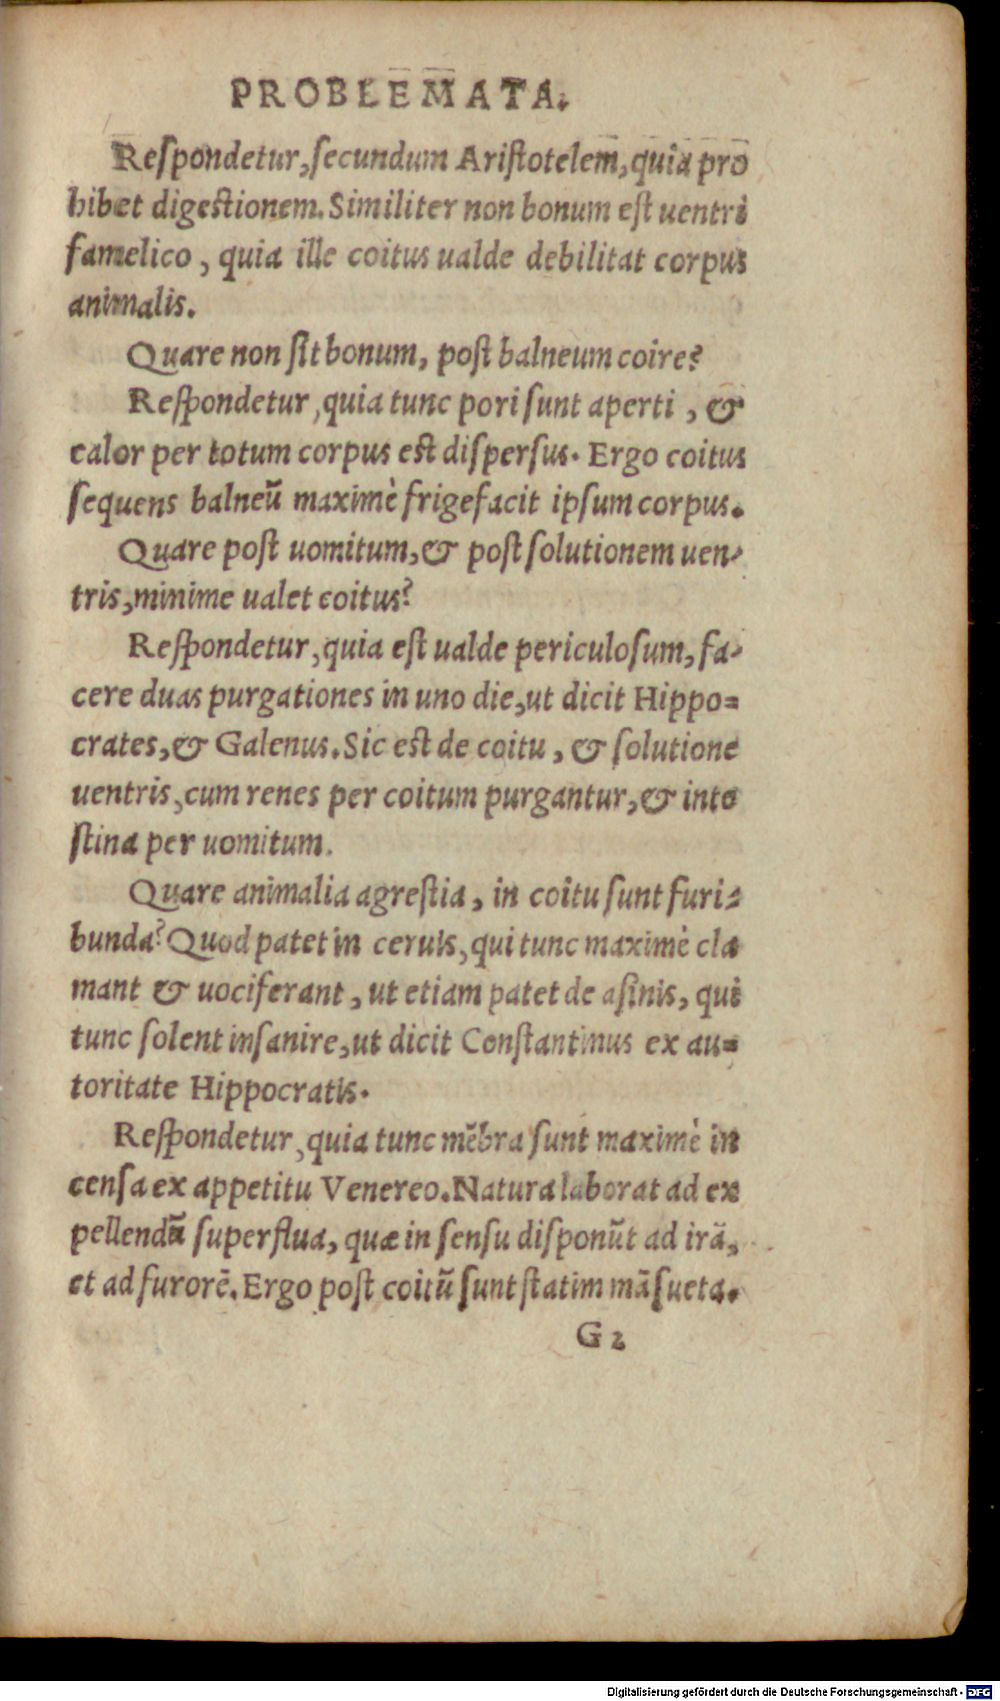 PROBLEMATA.
Reſpondetur, ſecundum Ariſtotelem, quia pro
hibet digeſtionem. Similiter non bonum eſt uentri
famelico, quia ille coitus ualde debilitat corpus
animalis.
Quare non ſit bonum, poſt balneum coire?
Reſpondetur, quia tunc pori ſunt aperti, &
calor per totum corpus eſt diſperſus. Ergo coitus
ſequens balneũ maximè frigefacit ipſum corpus.
Quare poſt uomitum, & poſt ſolutionem uen-
tris, minime ualet coitus?
Reſpondetur, quia eſt ualde periculoſum, fa-
cere duas purgationes in uno die, ut dicit Hippo=
crates, & Galenus. Sic eſt de coitu, & ſolutione
uentris, cum renes per coitum purgantur, & inte
ſtina per uomitum.
Quare animalia agreſtia, in coitu ſunt furi=
bunda? Quod patet in ceruis, qui tunc maximè cla
mant & uociferant, ut etiam patet de aſinis, qui
tunc ſolent inſanire, ut dicit Conſtantinus ex au=
toritate Hippocratis.
Reſpondetur, quia tunc mẽbra ſunt maximè in
cenſa ex appetitu Venereo. Natura laborat ad ex
pellendã ſuperflua, quæ in ſenſu diſponũt ad irã,
et ad furorẽ. Ergo poſt coitũ ſunt ſtatim mãſueta.
G 2
Digitalisierung gefördert durch die Deutsche Forschungsgemeinschaft - DFG